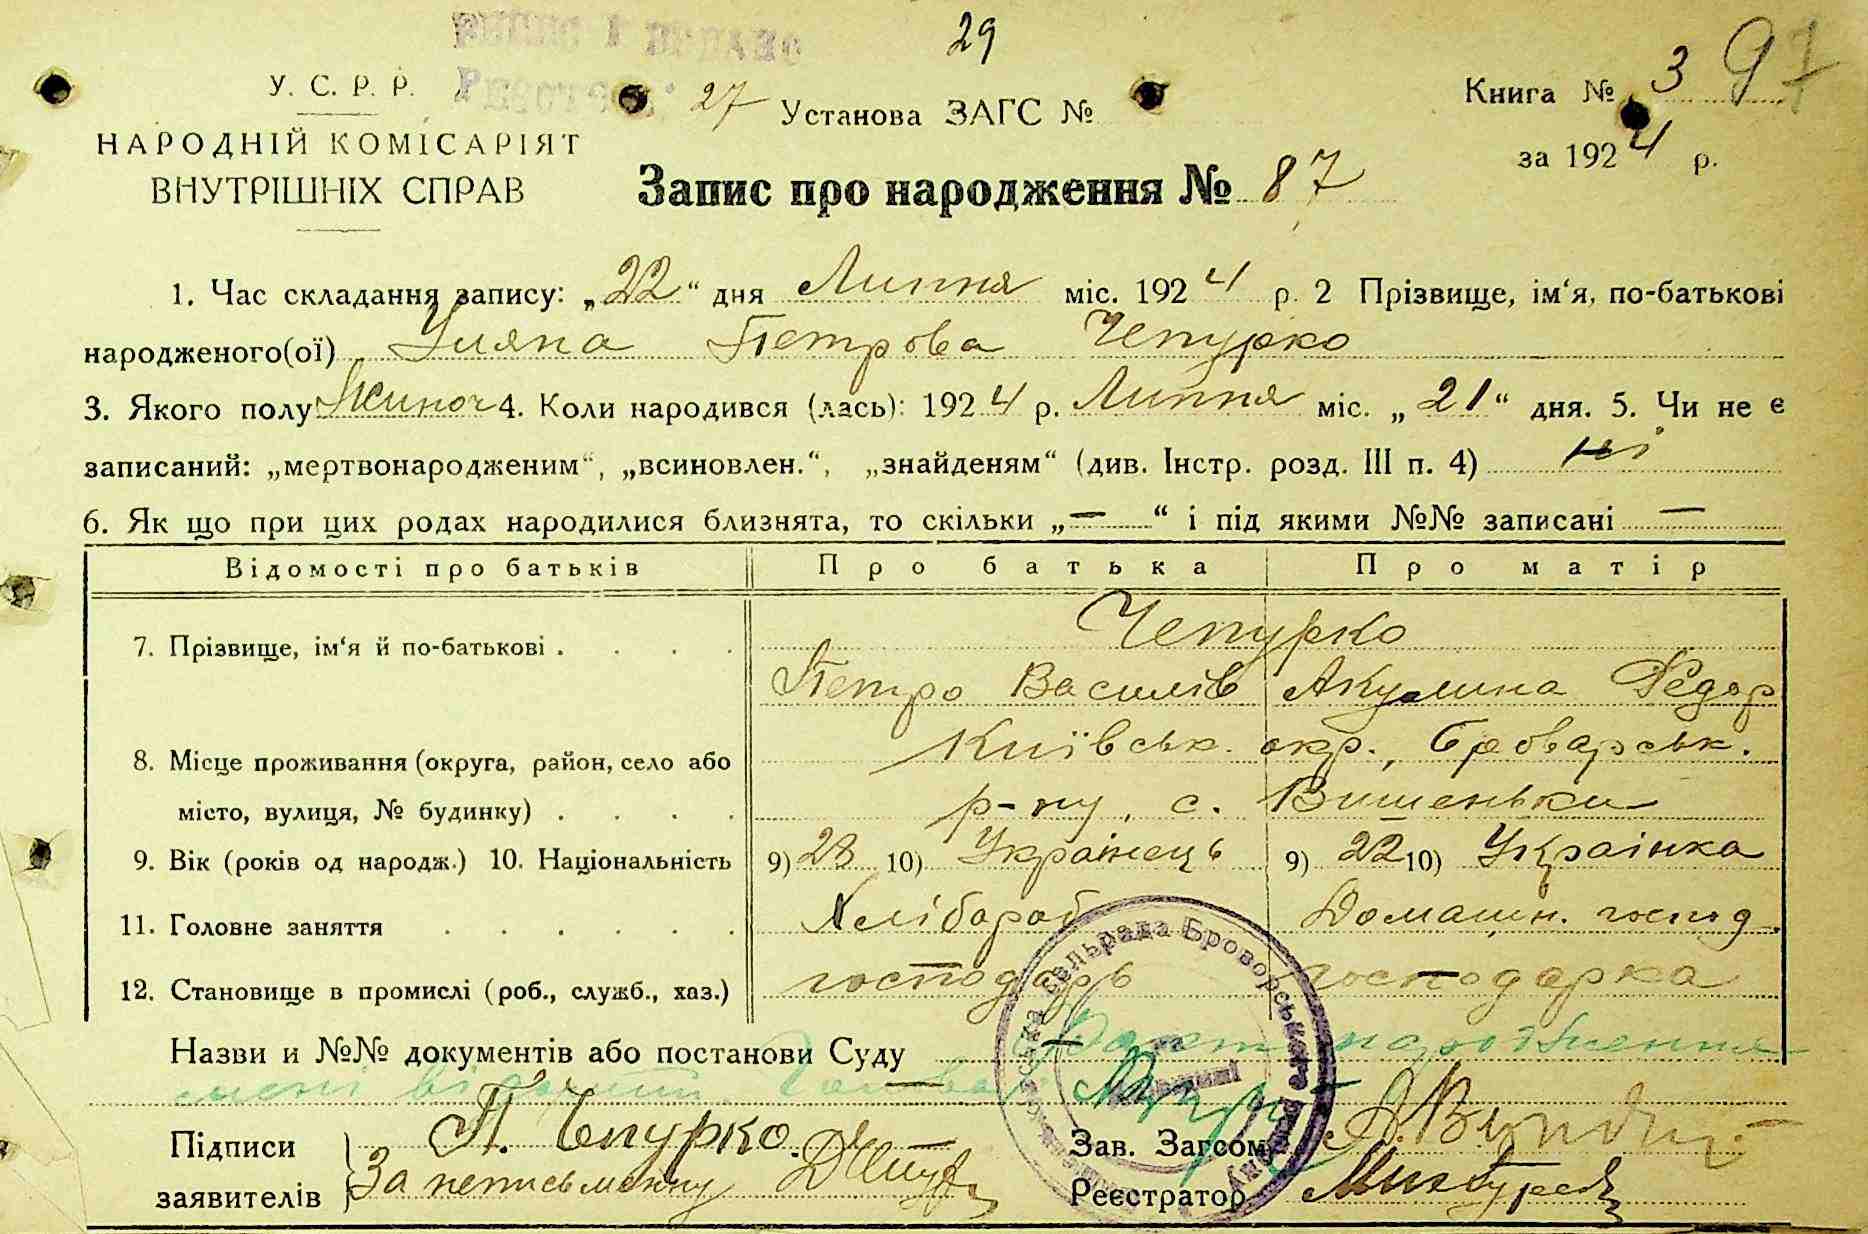 29
У. С. Р. Р.
27 Установа ЗАГС №
Книга № 3 97
НАРОДНІЙ КОМІСАРІЯТ
за 1924 р.
ВНУТРІШНІХ СПРАВ
Запис про народження № 87
1. Час складання запису: „22“ дня Липня міс. 1924 р. 2 Прізвище, ім‘я, по-батькові
народженого(ої) Уляна Петрова Чепурко
3. Якого полу Жиноч 4. Коли народився (лась): 1924 р. Липня міс. „21“ дня. 5. Чи не є
записаний: „мертвонародженим“, „всиновлен.“, „знайденям“ (див. Інстр. розд. III п. 4) ні
6. Як що при цих родах народилися близнята, то скільки „—“ і під якими №№ записані —
Відомості про батьків Про батька Про матір
7. Прізвище, ім‘я й по-батькові . . . . Чепурко
Петро Василів Акулина Федор
Київськ. окр., Броварськ.
8. Місце проживання (округа, район, село або
місто, вулиця, № будинку) . . . . р-ну, с. Вишеньки
9. Вік (років од народж.) 10. Національність 9) 28 10) Українець 9) 22 10) Українка
11. Головне заняття . . . . . . Хлібороб Домашн. господ.
12. Становище в промислі (роб., служб., хаз.) господарь господарка
Назви и №№ документів або постанови Суду —
Підписи П. Чепурко. Зав. Загсом
заявителів За неписьменну Реєстратор
сельрада Броворського Району